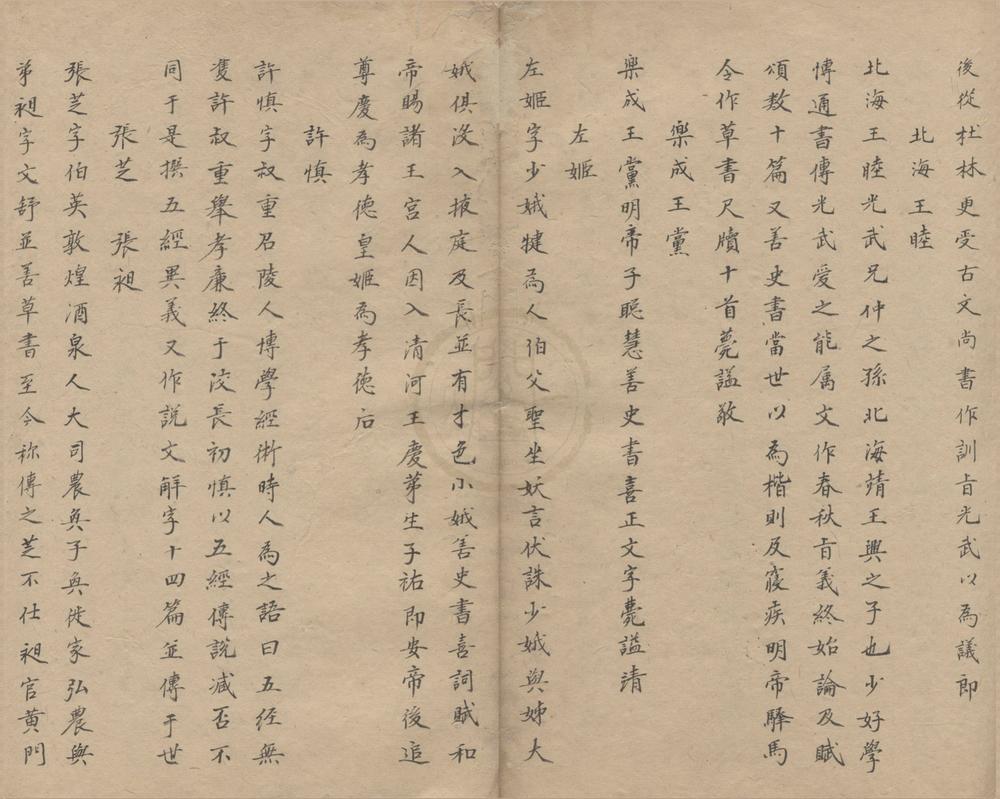 後從杜林更受古文尚書作訓旨光武以為議郎
北海王睦
北海王睦光武兄仲之孫北海靖王興之子也少好學
博通書傳光武愛之能属文作春秋旨義終始論及賦
頌数十篇又善史書當世以為楷則及寑疾明帝驛馬
令作草書尺牘十首薨謚敬
樂成王黨
樂成王黨明帝子聡慧善史書喜正文字薨謚清
左姬
左姬字少娥犍為人伯父聖坐妖言伏誅少娥與姊大
娥俱没入掖庭及長並有才色小娥善史書喜詞賦和
帝賜諸王宮人因入清河王慶苐生子祐即安帝後追
尊慶為孝德皇姬為孝德后
許慎
許慎字叔重召陵人博學經術時人為之語曰五經無
隻許叔重舉孝廉終于洨長初慎以五經傳說減否不
同于是撰五經異義又作說文解字十四篇並傳于世
張芝 張昶
張芝字伯英敦煌酒泉人大司農奐子奐徙家弘農與
苐昶字文舒並善草書至今称傳之芝不仕昶官黄門